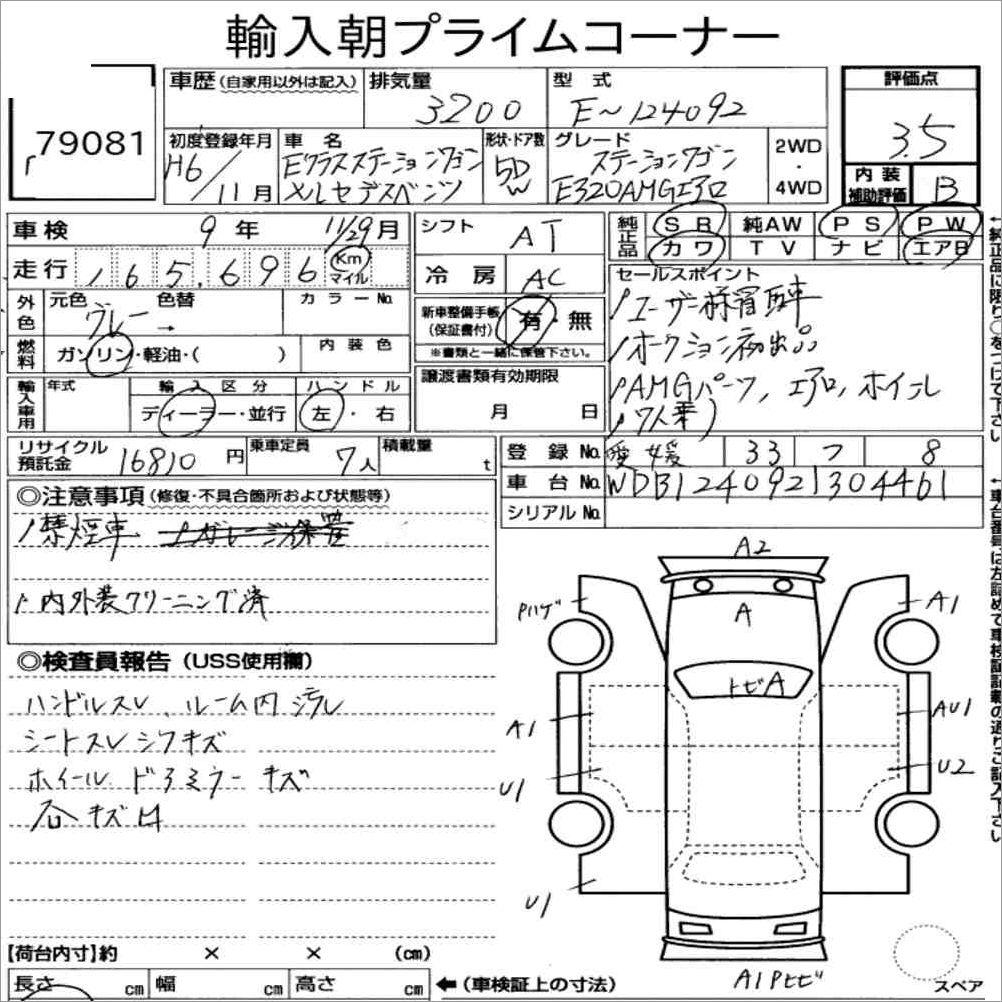 輸入朝プライムコーナー
79081
車歴 (自家用以外は記入)
排気量
3200
型 式
E~124092
評価点
3.5
内 装
補助評価
B
初度登録年月
H6/11月
車 名
Eクラスステーションワゴン
メルセデスベンツ
形状・ドア数
5D
W
グレード
ステーションワゴン
E320AMGエアロ
2WD
・
4WD
車検
9年 11/29月
走行
165,696
Km
マイル
シフト
AT
冷 房
AC
純正品
SR 純AW PS PW
カワ TV ナビ エアB
セールスポイント
ユーザー様買取車
オークション初出品
AMGパーツ, エアロ, ホイール
7人乗り
外色
元色
グレー
色替
→
カラーNo.
燃料
ガソリン・軽油・( )
内装色
新車整備手帳
(保証書付)
有・無
※書類と一緒に保管下さい。
輸入車用
年式
輸入区分
ディーラー・並行
ハンドル
左・右
譲渡書類有効期限
月 日
リサイクル
預託金
16810円
乗車定員
7人
積載量
t
登 録 No.
愛媛 33 フ 8
車 台 No.
WDB1240921304461
シリアル No.
◎注意事項 (修復・不具合箇所および状態等)
禁煙車 ガレージ保管
内外装クリーニング済
◎検査員報告 (USS使用欄)
ハンドルスレ、ルーム内ヨゴレ
シートスレ シワ キズ
ホイール ドアミラー キズ
石キズ 凹
A2
A
Pハゲ
A1
トビA
A1
AU1
U1
U2
U1
A1Pトビ
スペア
【荷台内寸】約 × × (cm)
長さ cm 幅 cm 高さ cm
←(車検証上の寸法)
←純正品に限り○をつけて下さい
←車台番号は左詰めで車検証記載の通りご記入下さい